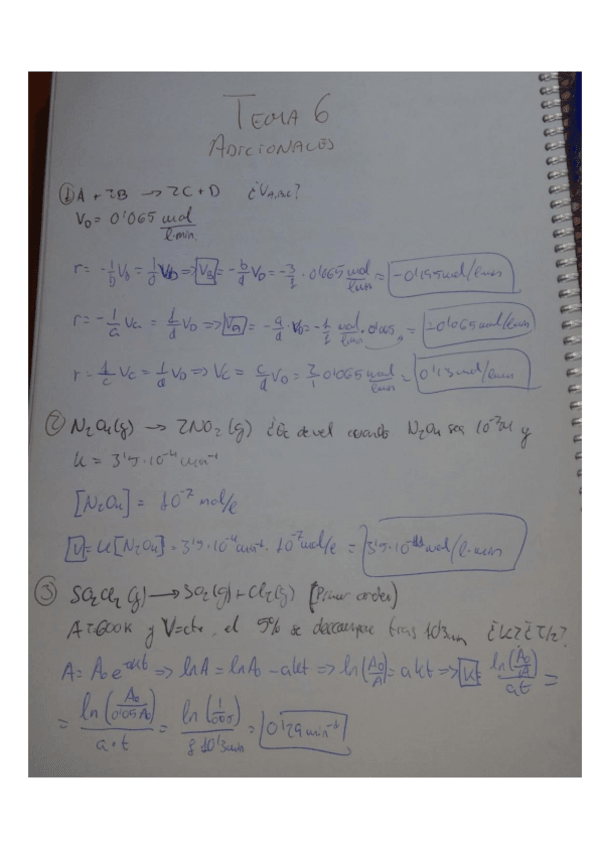 TEMA 6
ADICIONALES
① A + 2B → 2C + D ¿V_A,B,C?
V_D = 0'065 mol/l·min
r = -1/b V_b = 1/d V_D => V_B = -b/d V_D = · 0'065 mol/l·min =
r = -1/a = 1/d V_D => = -a/d · V_D = - mol/l·min · 0'065 = -0'065 mol/l·min
r = 1/c V_C = 1/d V_D => V_C = c/d V_D = 2/1 0'065 mol/l·min = 0'13 mol/l·min
② N₂O₄(g) → 2NO₂(g) de vel cuando N₂O₄ sea y
K = 3'5·10⁻⁴ min⁻¹
[N₂O₄] = mol/l
V = K[N₂O₄] = 3'5·10⁻⁴ min⁻¹ · mol/l = mol/l·min
③ SO₂Cl₂(g) → SO₂(g) + Cl₂(g) (Primer orden)
600K y V=cte, el 5% se descompone tras 10'3min ¿K?
A = A₀e^-akt => lnA = lnA₀ - akt => ln(A₀/A) = akt => K = ln(A₀/A)/at =
= ln(A₀/0'05A₀)/a·t = = 0'29 min⁻¹